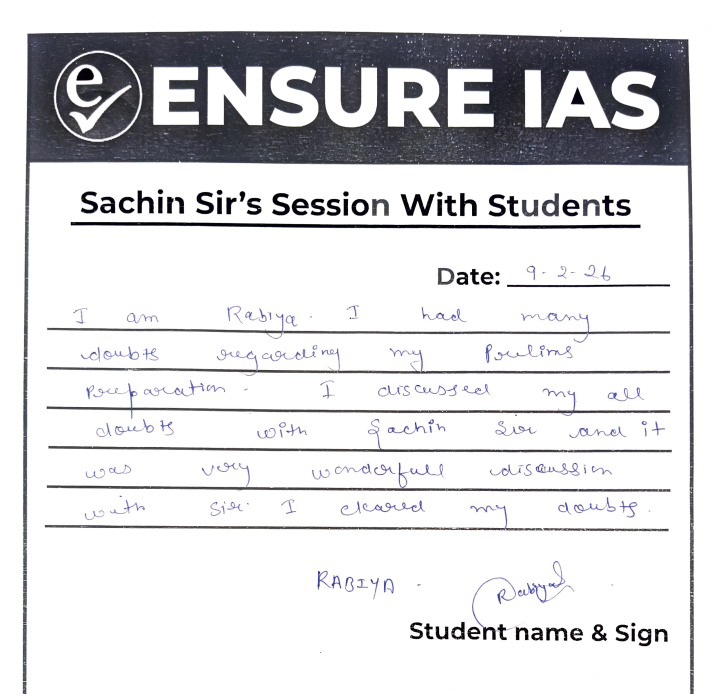 e ENSURE IAS
Sachin Sir's Session With Students
Date: 9-2-26
I am Rabiya. I had many
doubts regarding my Prelims
Preparation. I discussed my all
doubts with Sachin Sir and it
was very wonderfull discussion
with Sir. I cleared my doubts.
RABIYA. Rabiya
Student name & Sign